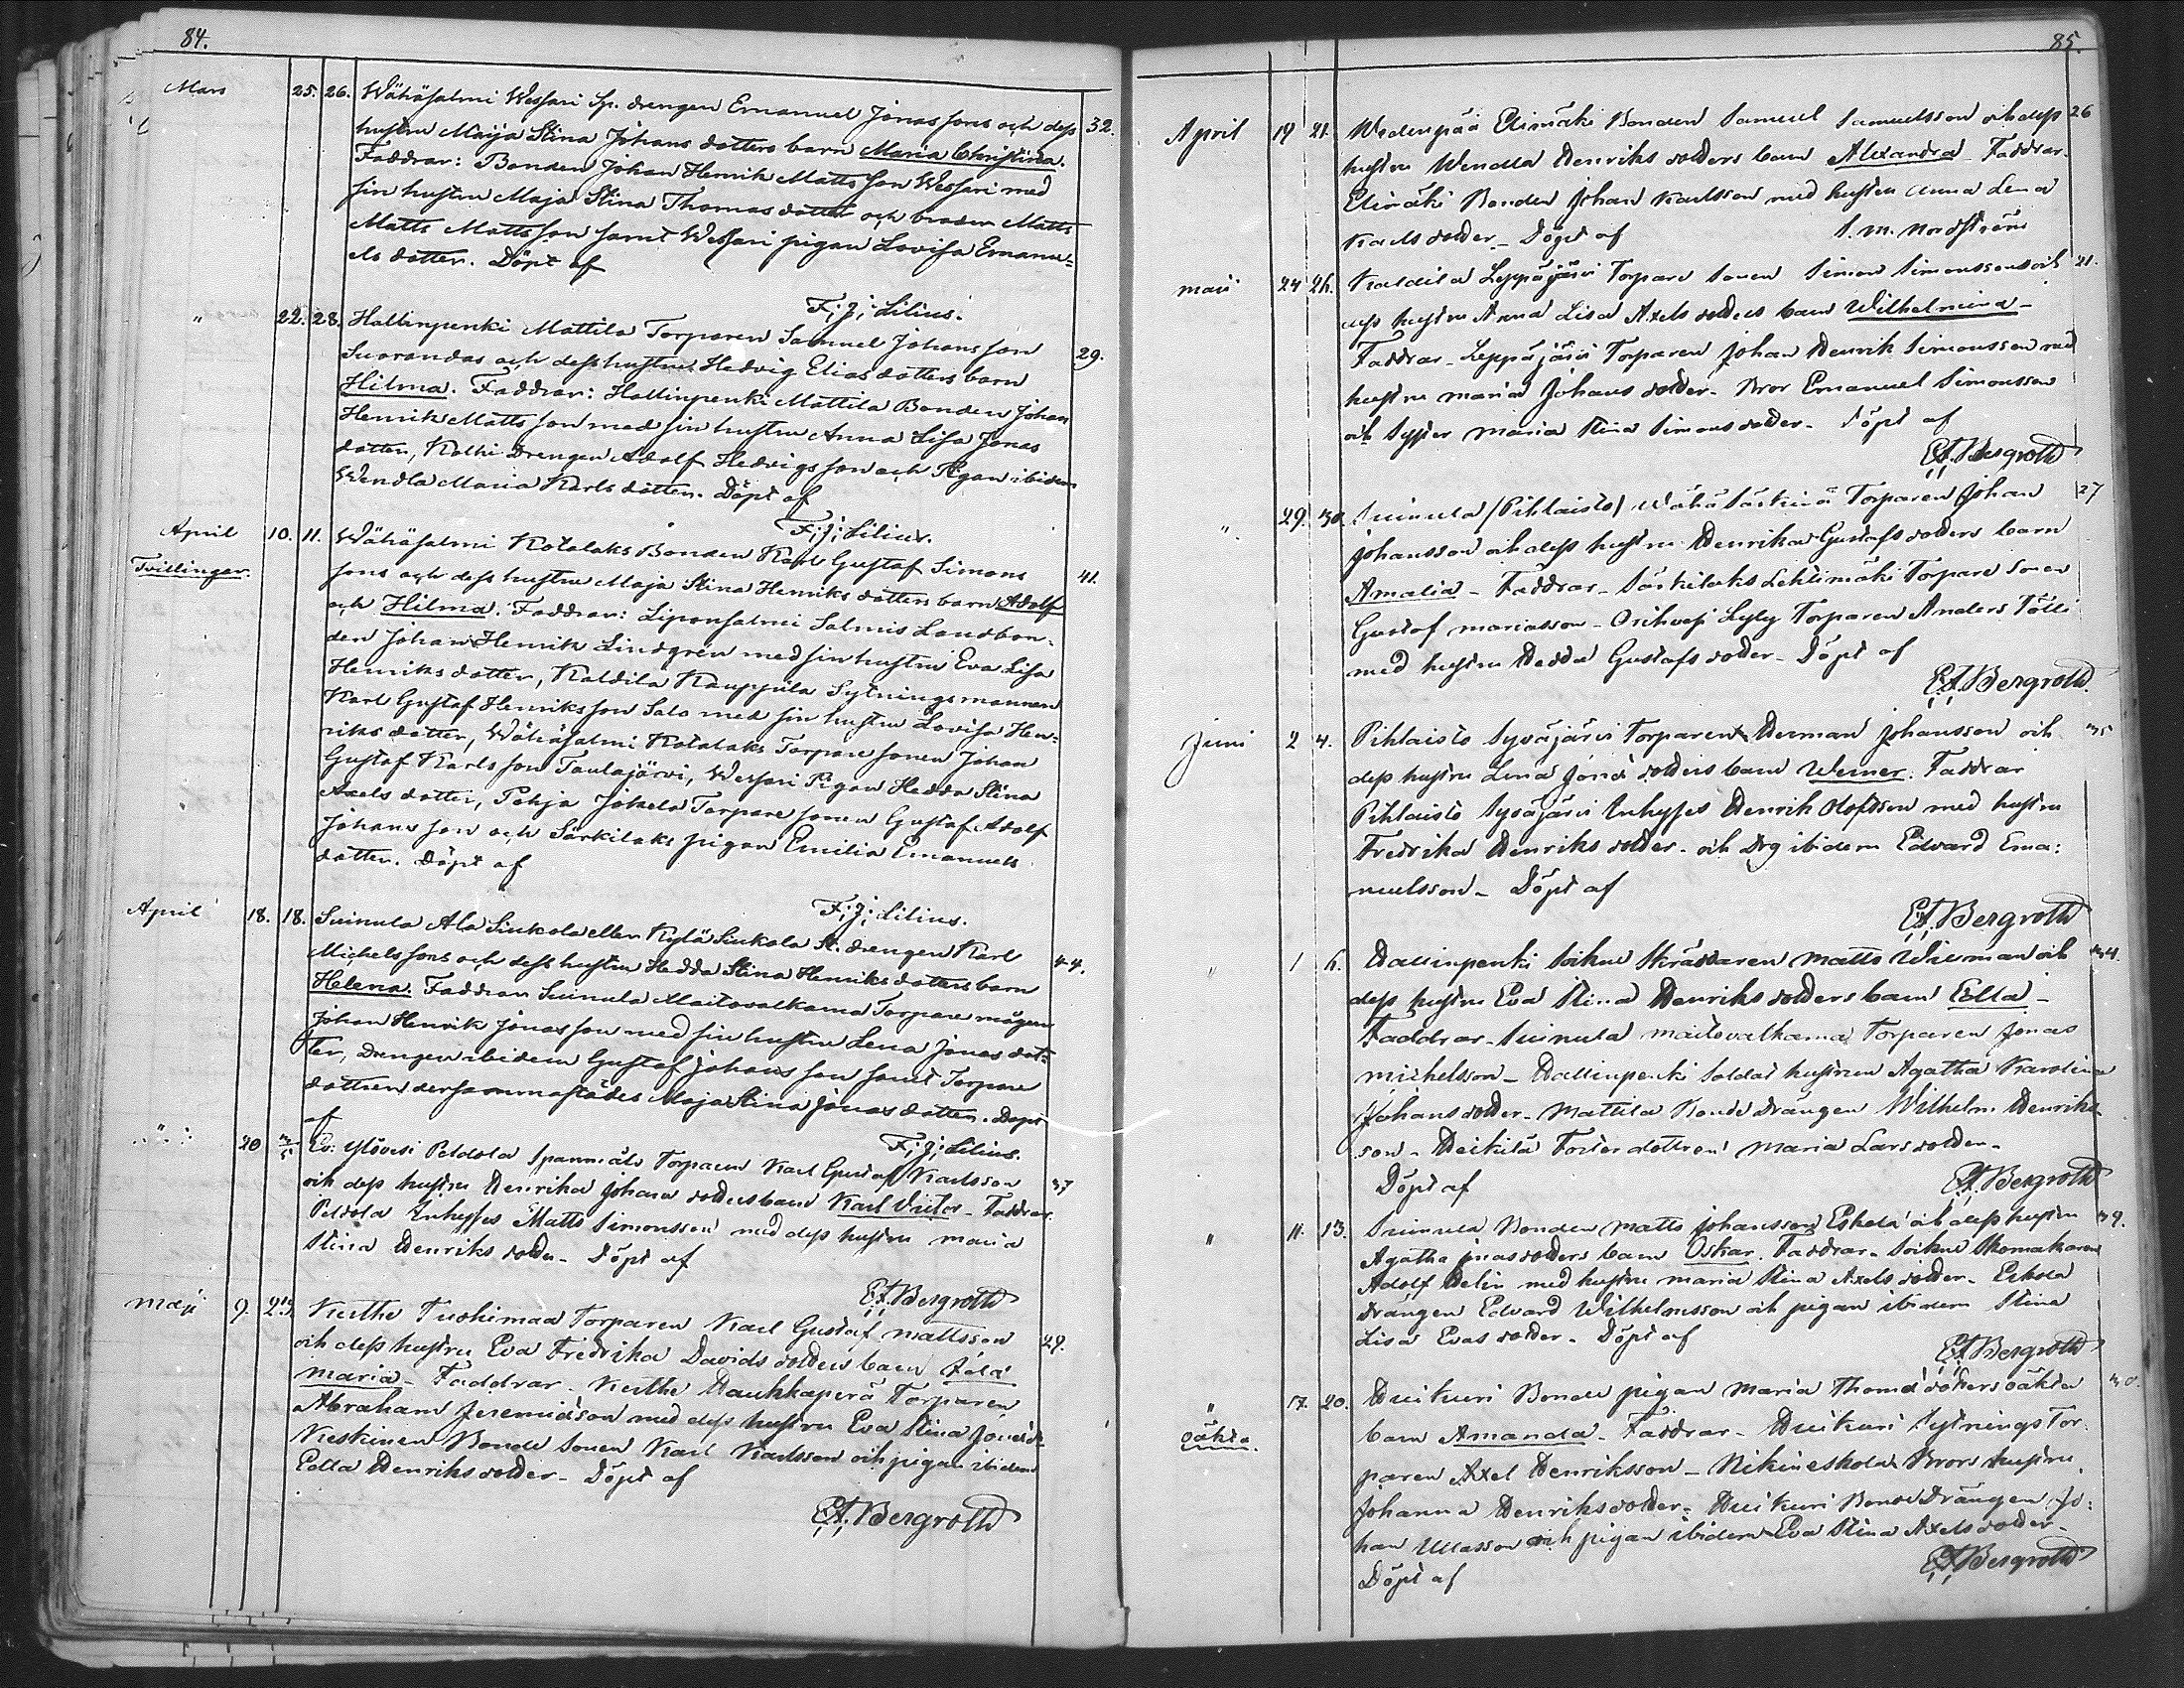 84.
Mars 25. 26. Wähäsalmi Wessari Sp. drengen Emanuel Jonas sons och dess 32.
hustru Maija Stina Johans dotters barn Maria Christina.
Faddrar: Bonden Johan Henrik Matts son Wessari med
sin hustru Maja Stina Thomas dotter och broder Matts
Matts Matts son samt Wessari pigan Lovisa Emanu=
els dotter. Döpt af
F; J; Lilius.
" 22. 28. Hallinpenki Mattila Torparen Samuel Johans son
Suorandas och dess hustru Hedvig Elias dotters barn 29.
Hilma. Faddrar: Hallinpenki Mattila Bonden Johan
Henrik Matts son med sin hustru Anna Lisa Jonas
dotter, Kolhi Drengen Adolf Hedvigs son och Pigan ibidem
Wendla Maria Karls dotter. Döpt af
F; J; Lilius.
April 10. 11. Wähäsalmi Kotalaks Bonden Karl Gustaf Simons
Tvillingar. sons och dess hustru Maja Stina Henriks dotters barn Adolf 41.
och Hilma. Faddrar: Liponsalmi Salmis Landbon-
den Johan Henrik Lindgrén med sin hustru Eva Lisa
Henriks dotter, Kaldila Kauppila Sytningsmannen
Karl Gustaf Henriks son Salo med sin hustru Lovisa Hen=
riks dotter, Wähäsalmi Kotalaks Torpare sonen Johan
Gustaf Karls son Taulajärvi, Wessari Pigan Hedda Stina
Axels dotter, Pohja Jokela Torpare sonen Gustaf Adolf
Johans son och Särkilaks pigan Emilia Emanuels
dotter. Döpt af
F; J; Lilius.
April 18. 18. Suinula Ala Siukola eller Kylä Siukola St. drengen Karl
Michels sons och dess hustru Hedda Stina Henriks dotters barn 44.
Helena. Faddrar Suinula Maitovalkama Torpare mågen
Johan Henrik Jonas son med sin hustru Lena Jonas dot=
ter, Drengen ibidem Gustaf Johans son samt Torpare
dottren dersammastädes Maja Stina Jonas dotter. Döpt
af
F; J; Lilius.
" 20 3/5 Ylövesi Peldola Torparen Karl Gustaf Karlsson
och dess hustru Henrika Johans dotters barn Karl Victor - Faddrar. 37
Peldola Inhyses Matts Simonsson med dess hustru Maria
Stina Henriks dotter - Döpt af
E.A. Bergroth
Maji 9. Kuthe Tuohimaa Torparen Karl Gustaf Mattsson 29.
och dess hustru Eva Fredrika Davids dotters barn
Maria - Faddrar - Kuthe Haukkaperä Torparen
Abraham Jeremiasson med dess hustru Eva Stina
Keskinen Bonde sonen Karl Karlsson och pigan ibidem
Edla Henriks dotter - Döpt af
E.A. Bergroth
85.
April 19 21. Wedenpää Elimäki Bonden Samuel Samuelsson och dess 26
hustru Wendla Henriks dotters barn Alexandra - Faddrar.
Elimäki Bonden Johan Karlsson med hustru Anna Lena
Karls dotter - Döpt af
Nordström
Maii 24 26. Kaldila Leppäjärvi Torpare sonen Simon Simonssons och 21.
dess hustru Anna Lisa Axels dotters barn Wilhelmina -
Faddrar - Leppäjärvi Torparen Johan Henrik Simonsson med
hustru Maria Johans dotter - Bror Emanuel Simonsson
och Syster Maria Stina Simons dotter - Döpt af
E.A. Bergroth
" 29. 30 Suinula (Pihlaisto) Torparen Johan 27
Johansson och dess hustru Henrika Gustafs dotters barn
Amalia - Faddrar - Särkilaks Lehtimäki Torpare sonen
Gustaf Mariasson - Orihvesi Lyly Torparen Anders Tölli
med hustru Hedda Gustafs dotter - Döpt af
E.A. Bergroth.
Juni 2 4. Pihlaisto Syväjärvi Torparen Herman Johansson och 35
dess hustru Lena Jonas dotters barn Werner. Faddrar
Pihlaisto Syväjärvi Inhyses Henrik Olofsson med hustru
Fredrika Henriks dotter - och Drg ibidem Edvard Ema:
nuelsson - Döpt af
E.A. Bergroth
" 1 6. Hallinpenki Soikus Skräddaren Matts Widman och 34.
dess hustru Eva Stina Henriks dotters barn Edla -
Faddrar - Suinula Maitovalkama Torparen Jonas
Michelsson - Hallinpenki Soldat hustrun Agatha Karolina
Johans dotter - Mattila Bonde drängen Wilhelm Henriks
son - Heikilä Foster dottren Maria Lars dotter -
Döpt af
E.A. Bergroth
" 11. 13. Suinula Bonden Matts Johansson Eskola och dess hustru 39.
Agatha Jonas dotters barn Oskar. Faddrar - Soikus Skomakaren
Adolf Helin med hustru Maria Stina Axels dotter - Eskola
Drängen Edvard Wilhelmsson och pigan ibidem Stina
Lisa Evas dotter - Döpt af
E.A. Bergroth
" 17. 20. Huikuri Bonde pigan Maria Thomas dotters oäkta 30.
oäkta. barn Amanda - Faddrar - Huikuri Sytnings Tor
paren Axel Henriksson - Bror hustru
Johanna Henriks dotter - Huikuri Bonde Drängen Jo:
han Ullasson och pigan ibidem Eva Stina Axels dotter -
Döpt af
E.A. Bergroth